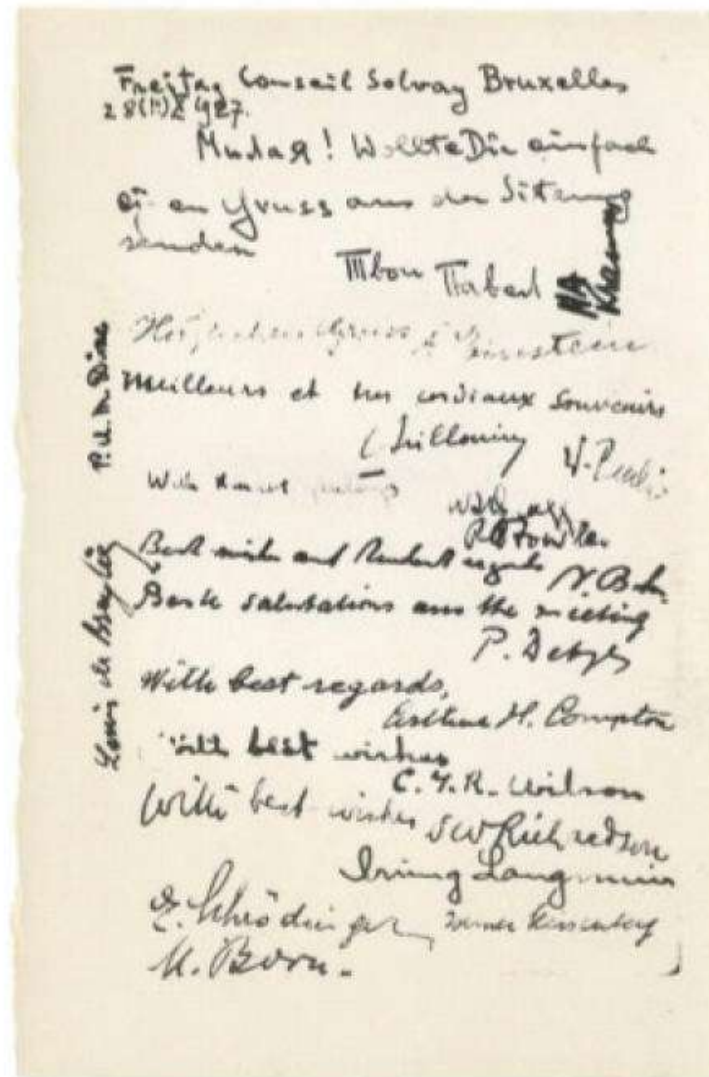 Freitag Conseil Solvay Bruxelles
28 1927.
Милая! Wollte Dir einfach
einen Gruss aus der Sitzung
senden
Твой Павел
HA Kramers
Herzlichen Gruss Einstein
Meilleurs et cordiaux souvenirs
L Brillouin
W. Pauli
With kindest
With
RH Fowler
Best wishes and kindest regards N. Bohr
Beste salutations aus the meeting
P. Debye
With best regards,
Arthur H. Compton
With best wishes
C. T. R. Wilson
With best wishes OW Richardson
Irving Langmuir
E. Schrödinger Werner Heisenberg
M. Born.
P. A. M. Dirac
Louis de Broglie